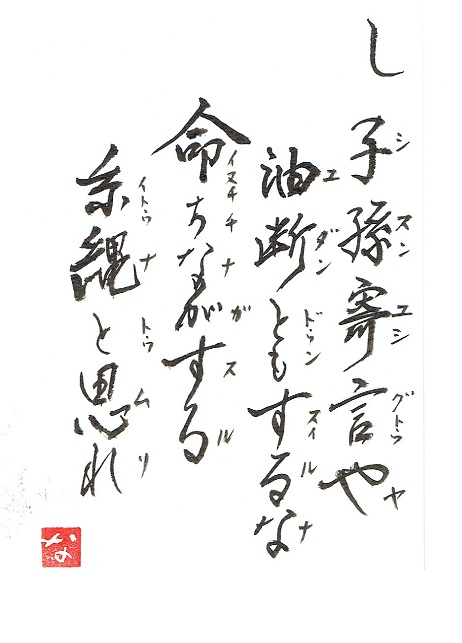 し
子孫寄言や
シスンユシグトゥヤ
油断ともするな
ユダンドゥンスィルナ
命ちながする
イヌチチナガスル
糸縄と思れ
イトゥナトゥムリ
な